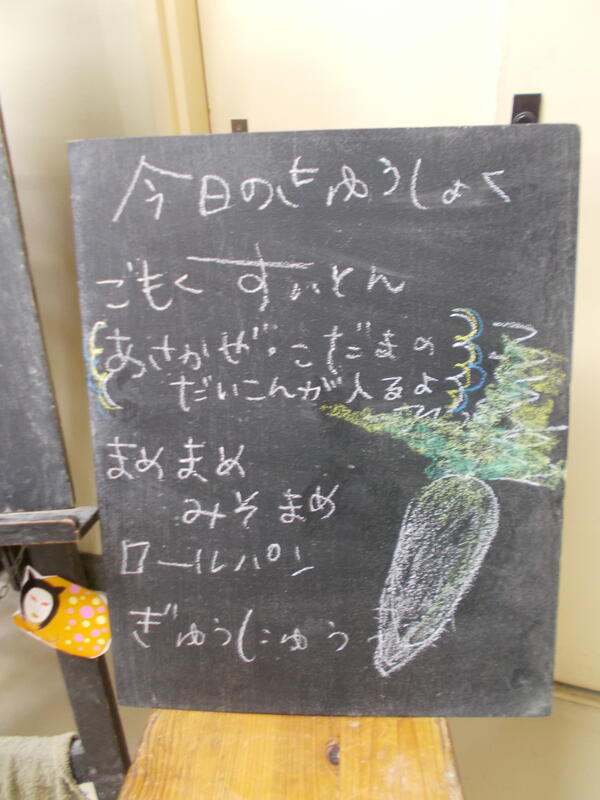 今日のきゅうしょく
ごもくすいとん
あさかぜ・こだまの
だいこんが入るよ
まめまめ
みそまめ
ロールパン
ぎゅうにゅう